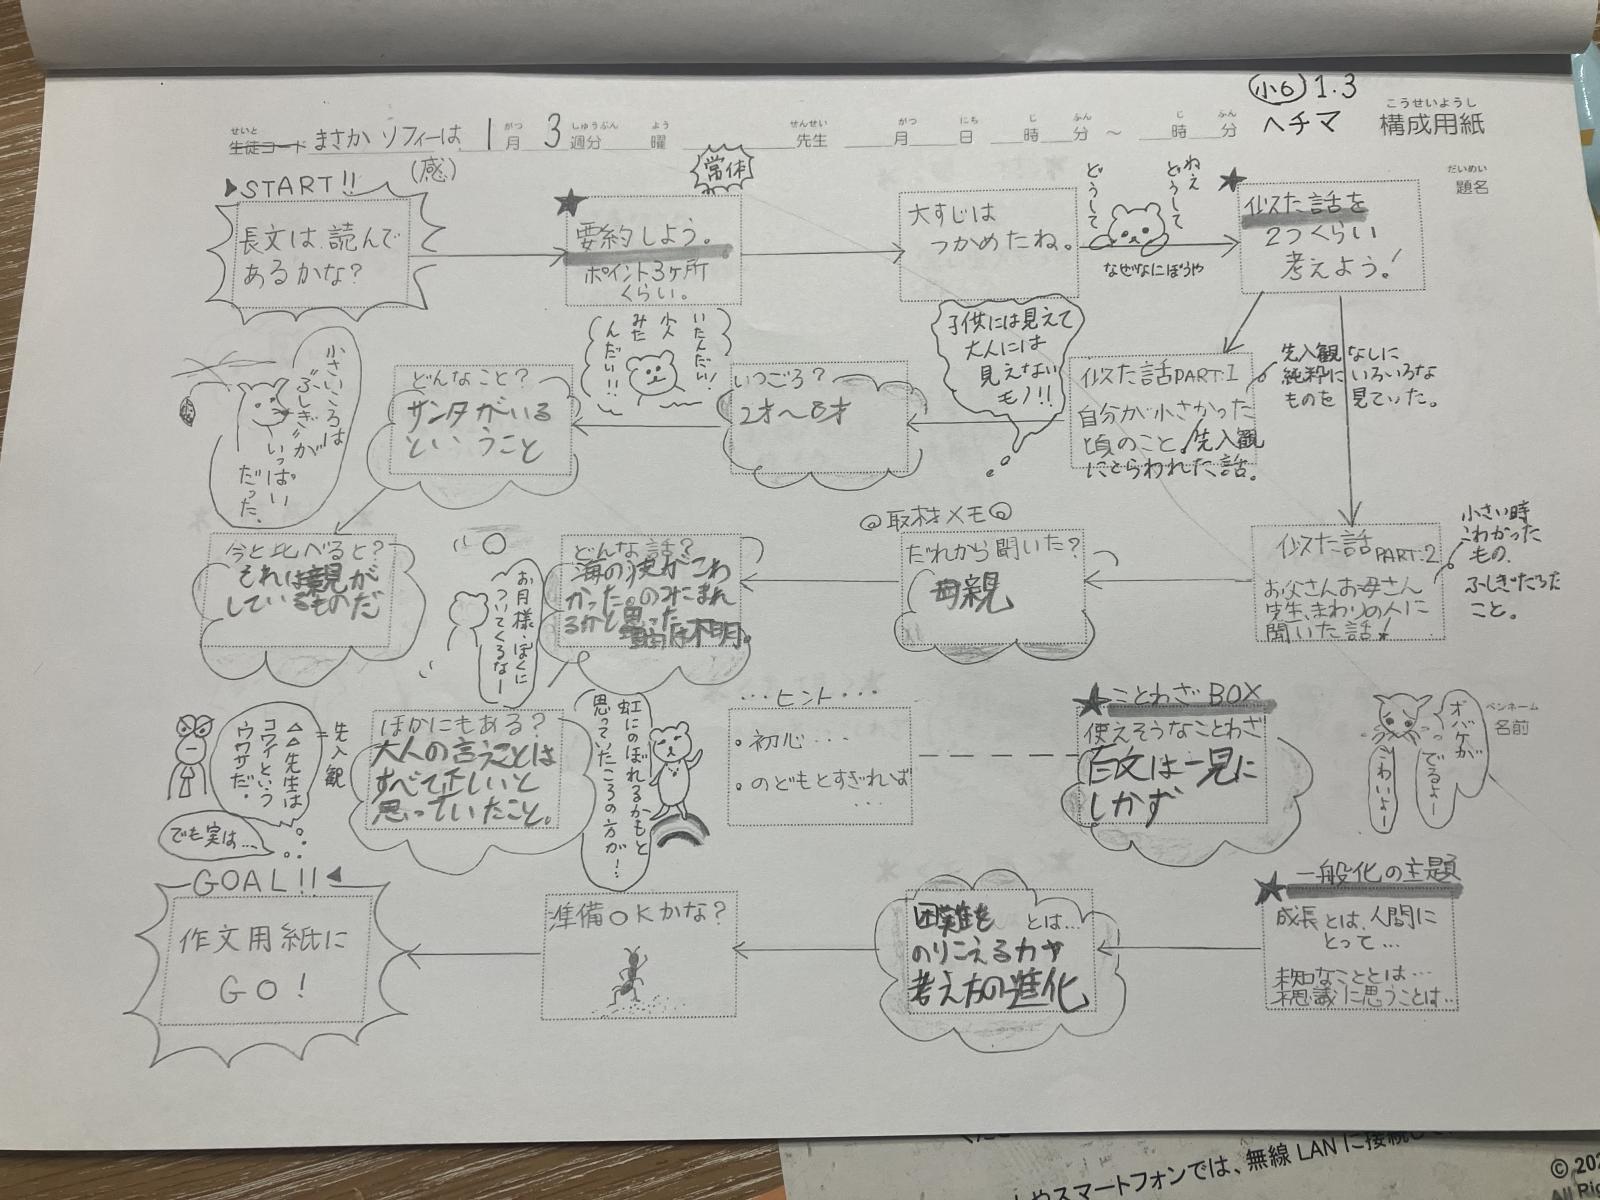 小6 1.3
ヘチマ
こうせいようし
構成用紙
せいと
生徒コード まさか ソフィーは 1 がつ 月 3 しゅうぶん 週分 よう 曜 せんせい 先生 がつ 月 にち 日 じ 時 ふん 分 ~ じ 時 ふん 分
(感)
常体
だいめい
題名
START!!
長文は読んで
あるかな?
★
要約しよう。
ポイント3ヶ所
くらい。
大すじは
つかめたね。
どうして
どうして
ねえ
なぜなにぼうや
★
似た話を
2つくらい
考えよう!
先入観なしに
純粋にいろいろな
ものを見ていた。
似た話PART.1
自分が小さかった
頃のこと/先入観
にとらわれた話。
子供には見えて
大人には
見えない
モノ!!
いつごろ?
2才~8才
いたんだい!
小人
みた
んだい!!
どんなこと?
サンタがいる
ということ
小さいころは
"ふしぎ"が
いっぱい
だった。
今と比べると?
それは親が
しているものだ
小さい時
こわかった
もの、
ふしぎだった
こと。
似た話 PART.2
お父さんお母さん
先生、まわりの人に
聞いた話!
◎取材メモ◎
だれから聞いた?
母親
どんな話?
海の波がこわ
かった。のみこまれ
るかと思った
理由は不明。
お月様、ぼくに
ついてくるなー
ほかにもある?
大人の言うことは
すべて正しいと
思っていたこと。
虹にのぼれるかもと
思っていたころの方が!…
=先入観
△△先生は
コワイという
ウワサだ。
でも実は…
…ヒント…
・初心…
・のどもとすぎれば
…
★ことわざBOX
使えそうなことわざ
百文は一見に
しかず
オバケが
でるよー
こわいよー
ペンネーム
名前
★一般化の主題
成長とは、人間に
とって…
未知なこととは…
不思議に思うことは…
困難を とは…
のりこえる力や
考え方の進化
準備OKかな?
GOAL!!
作文用紙に
GO!
やスマートフォンでは、無線LANに接続し
© 202
All Ri